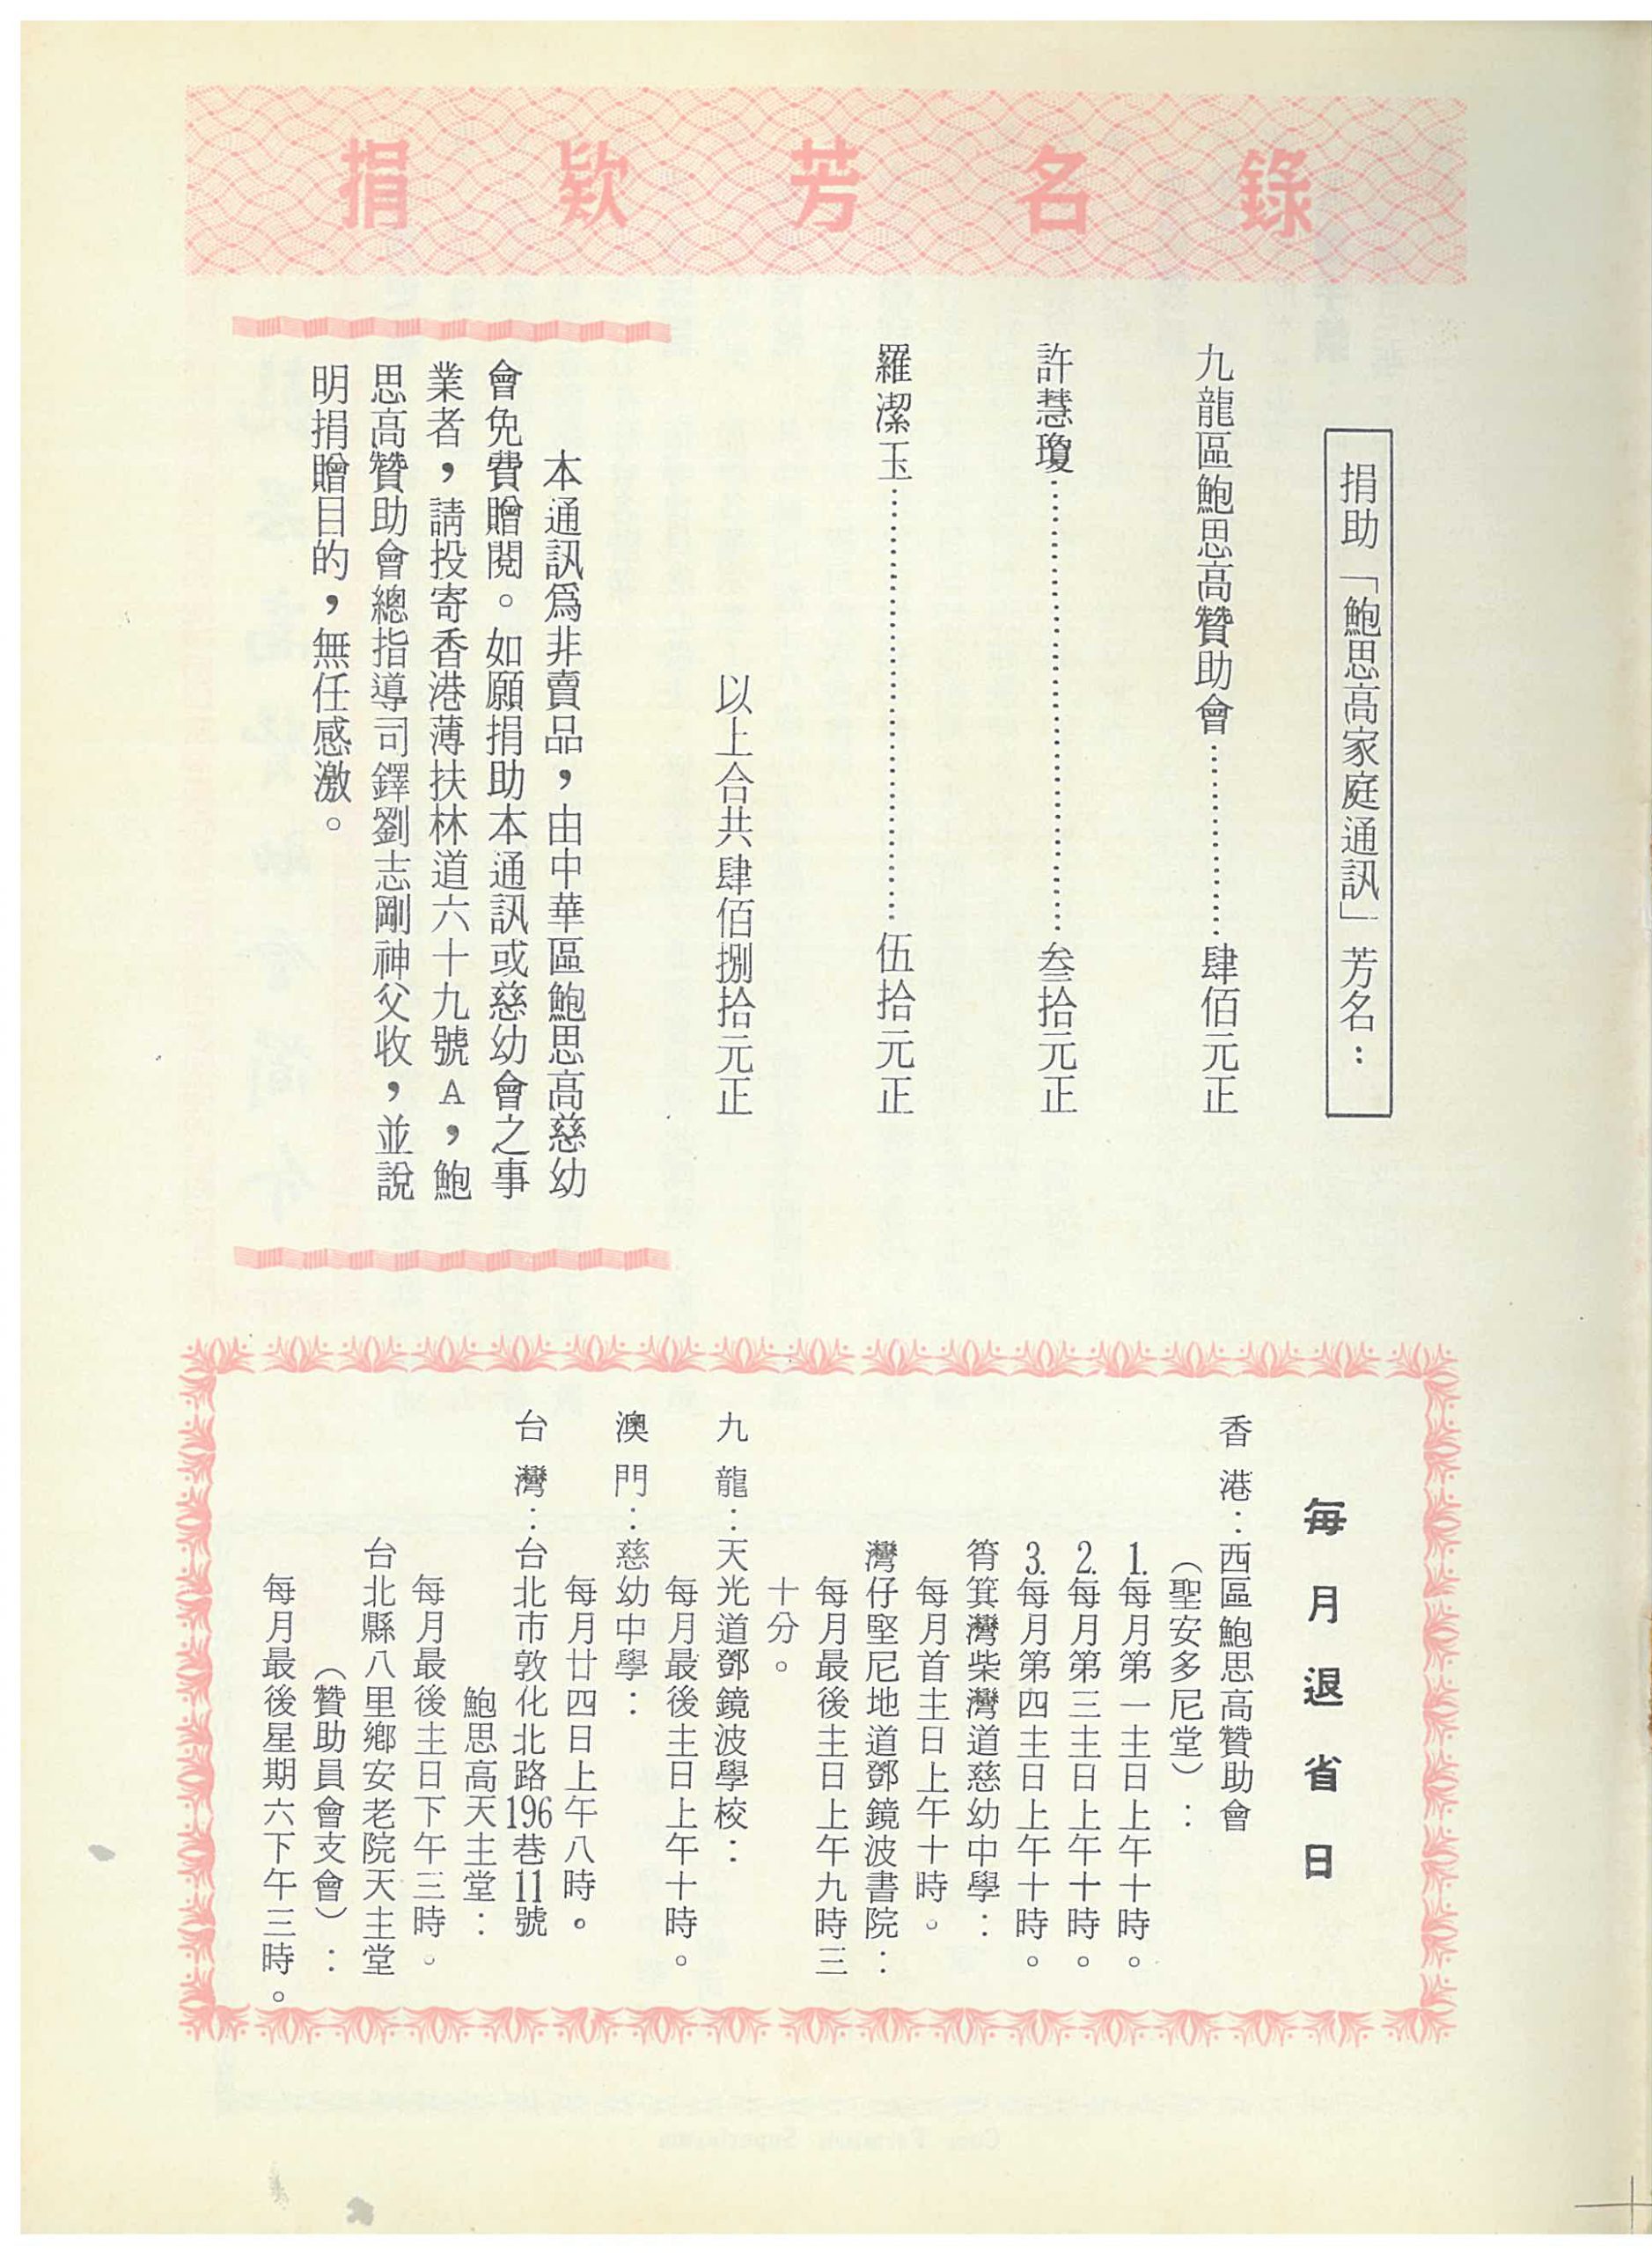 捐款芳名錄
捐助「鮑思高家庭通訊」芳名：
九龍區鮑思高贊助會……………肆佰元正
許慧瓊……………………………叁拾元正
羅潔玉……………………………伍拾元正
以上合共肆佰捌拾元正
本通訊爲非賣品，由中華區鮑思高慈幼
會免費贈閱。如願捐助本通訊或慈幼會之事
業者，請投寄香港薄扶林道六十九號A，鮑
思高贊助會總指導司鐸劉志剛神父收，並說
明捐贈目的，無任感激。
每月退省日
香港：西區鮑思高贊助會
（聖安多尼堂）：
1.每月第一主日上午十時。
2.每月第三主日上午十時。
3.每月第四主日上午十時。
筲箕灣柴灣道慈幼中學：
每月首主日上午十時。
灣仔堅尼地道鄧鏡波書院：
每月最後主日上午九時三
十分。
九龍：天光道鄧鏡波學校：
每月最後主日上午十時。
澳門：慈幼中學：
每月廿四日上午八時。
台灣：台北市敦化北路196巷11號
鮑思高天主堂：
每月最後主日下午三時。
台北縣八里鄉安老院天主堂
（贊助員會支會）：
每月最後星期六下午三時。